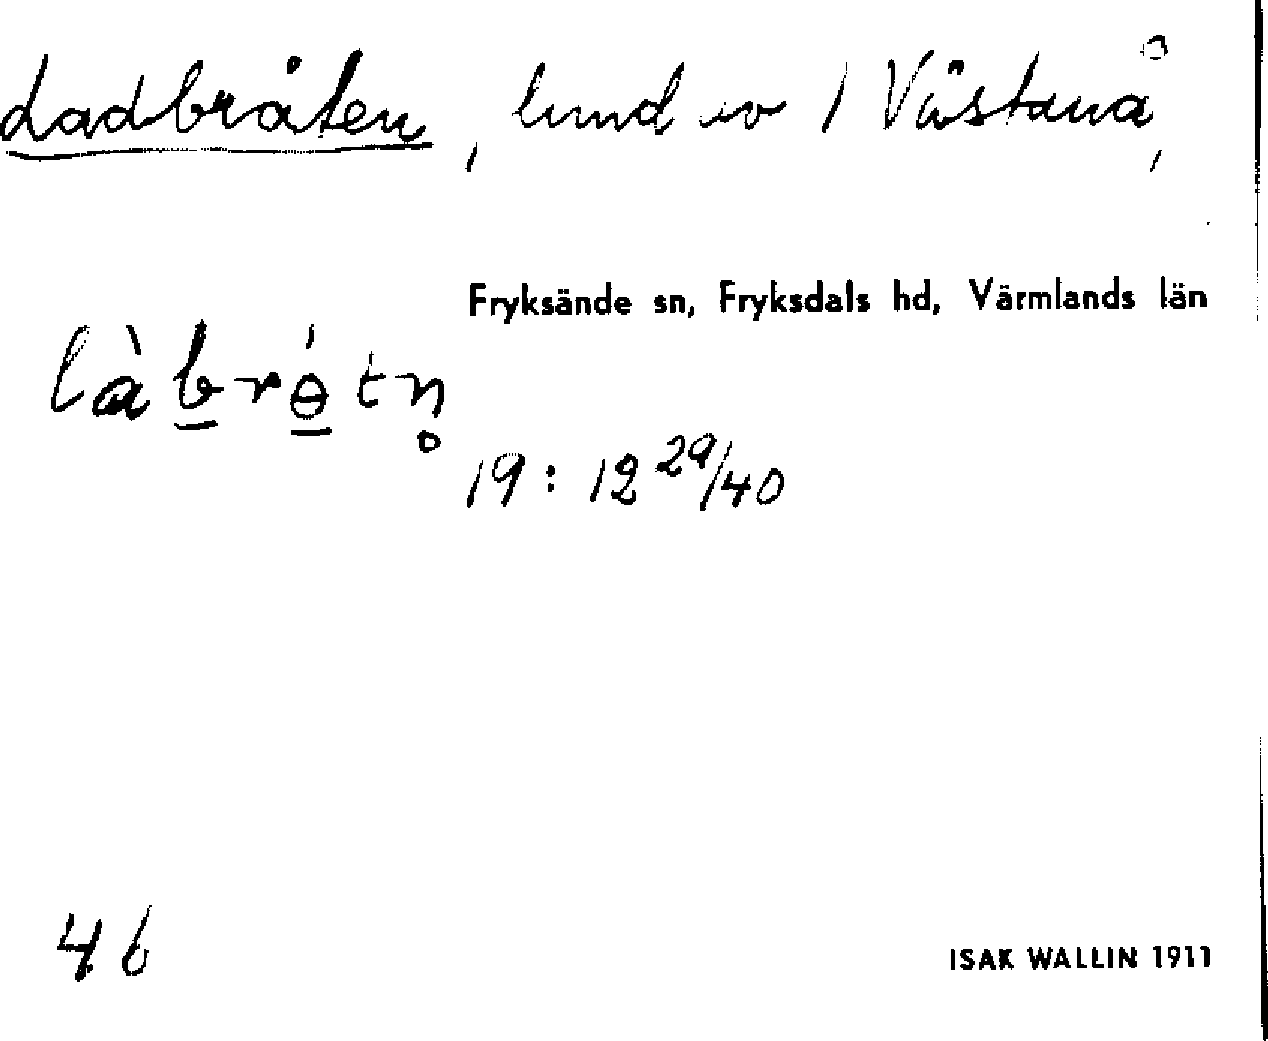 Ladbråten, lund ev / Västanå,
Fryksände sn, Fryksdals hd, Värmlands län
làb̲rɵ̲́tn̥
19: 12 29/40
46
ISAK WALLIN 1911